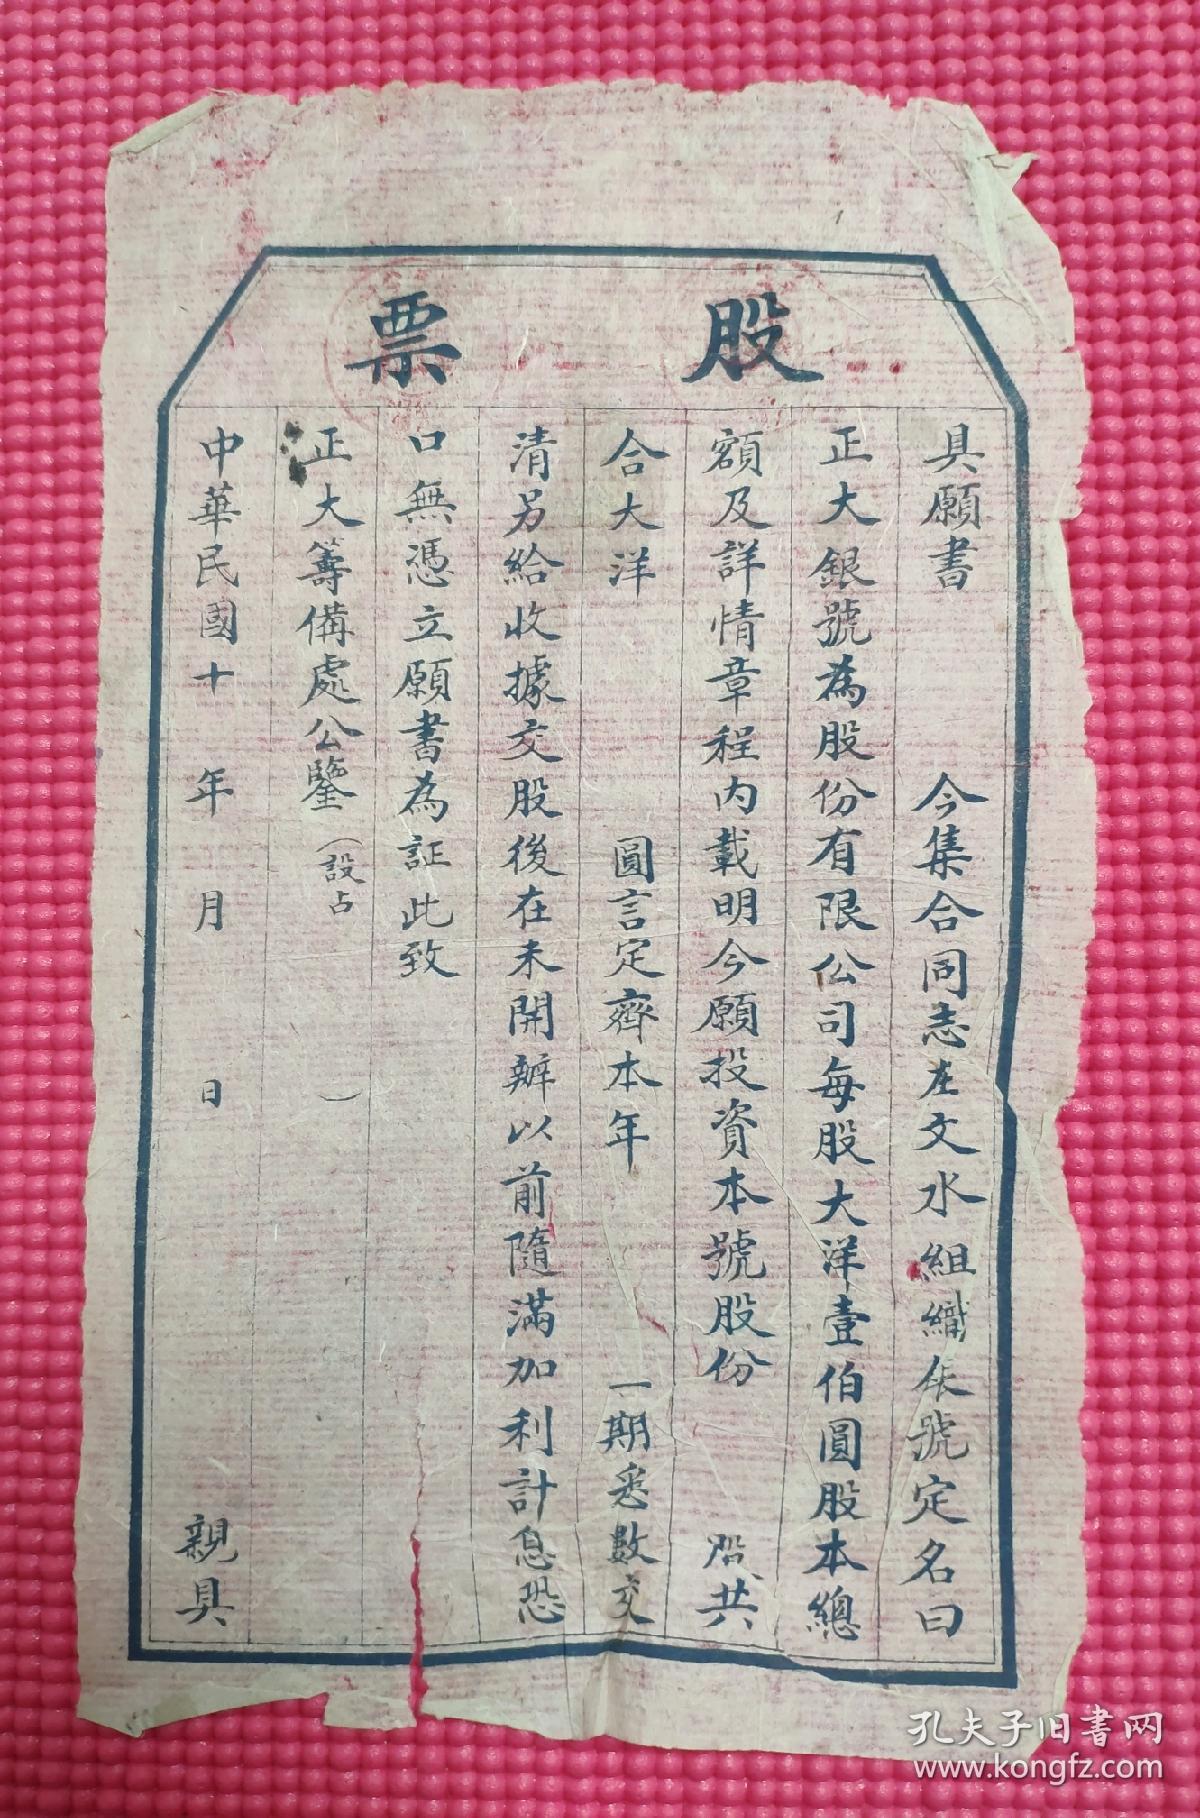 股票
具願書　　　今集合同志在文水組織銀號定名曰
正大銀號為股份有限公司每股大洋壹伯圓股本總
額及詳情章程內載明今願投資本號股份　　股共
合大洋　　　　圓言定齊本年　　　一期悉數交
清另給收據交股後在未開辦以前隨滿加利計息恐
口無憑立願書為証此致
正大籌備處公鑒（設占　　　）
中華民國十　年　月　　日　　　　　親具
孔夫子旧書网
www.kongfz.com